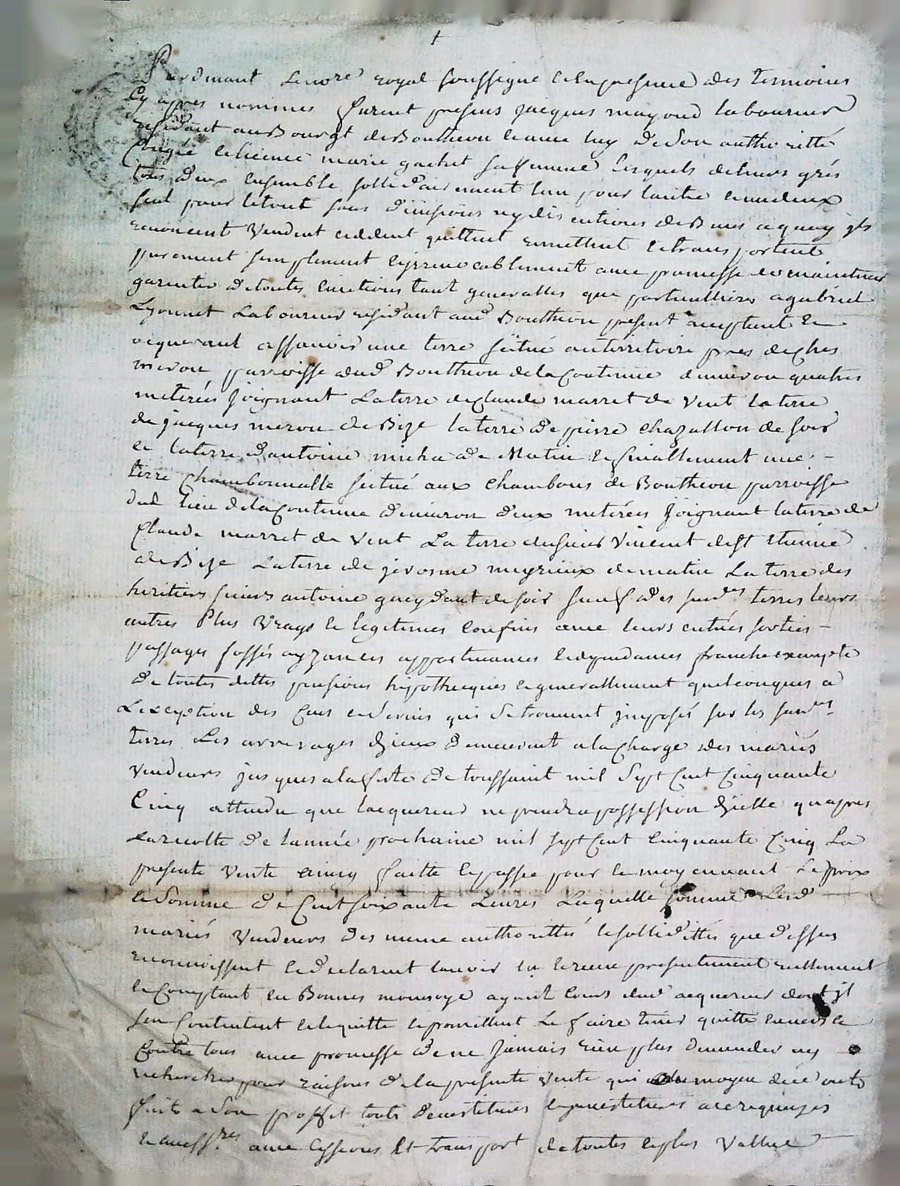 Pardevant le no.re royal soussigne et en presence des temoins
cy apres nommes furent presens jacques mayoud laboureur
residant au Bourgt de Boutheon et avec luy de Son authoritté
Congée et licence marie gachet sa femme lesquels de leurs grés
tous d'eux ensemble sollidairement l'un pour l'autre et un d'eux
seul pour le tout sans d'iuisions ny discutions de Biens a quoy jls
renoncent Vendent ceddent quittent remettent et transportent
purement simplement et jrreuocablement auec promesse de maintenir
garentir de toutes euictions tant generalles que particullieres a gabriel
Lyonnet Laboureur residant aud Boutheon present acceptant et
acquerant assauoir une terre scitué au territoire pres de Ches
merou parroisse dud Boutheon de la Contenue d'enuiron quatres
meterées joignant La terre de Claude marret de Vent la terre
de jacques merou de Bize la terre de pierre chazallon de soir
et la terre d'antoine micha de Matin et finallement une
terre Chambonnalle scitué aux Chambons de Boutheon parroisse
dud lieu de la Contenue d'enuiron d'eux meterées joignant la terre de
Claude marret de Vent La terre du sieur Vincent de St etienne
de Bize La terre de jerosme meyrieux de matin La terre des
heritiers sieur antoine gueydant de soir sauf des susd.es terres leurs
autres Plus Vrays et legitimes Confins auec leurs entrées sorties
passages fossés ayzances appartenances et dependances franche exempte
de toutes dettes pensions hypotheques et generallement quelconques a
L'exception des Cens et seruis qui se trouuent jmposés sur les susd.es
terres Les arrerages d'jceux demeurent a la Charge des mariés
Vendeurs jusques a la feste de toussaint mil Sept Cent Cinquante
Cinq attendu que lacquereur ne prendra possession d'jcelle qu'apres
La recolte de l'année prochaine mil sept Cent Cinquante Cinq La
presente Vente ainsy faitte et passée pour et moyennant Le prix
et Somme de Cent soixante Liures Laquelle somme Lesd
mariés Vendeurs des meme authorittés et sollidittés que d'essus
reconnoissent et declarent lauoir eu et receue presentement reellement
et Comptant en Bonnes monoye ayant Cours dud acquereur dont jl
sen Contentent et le quitte et promettent Le faire tenir quitte enuers et
Contre tous auec promesse de ne jamais rien plus demander ny
rechercher pour raisons de la presente Vente qui au moyen de ce ont
fait a Son proffit touts deuestitures et juuestitures a ce requises
et necess.res auec Cessions Et transport de toutes et plus Vallue